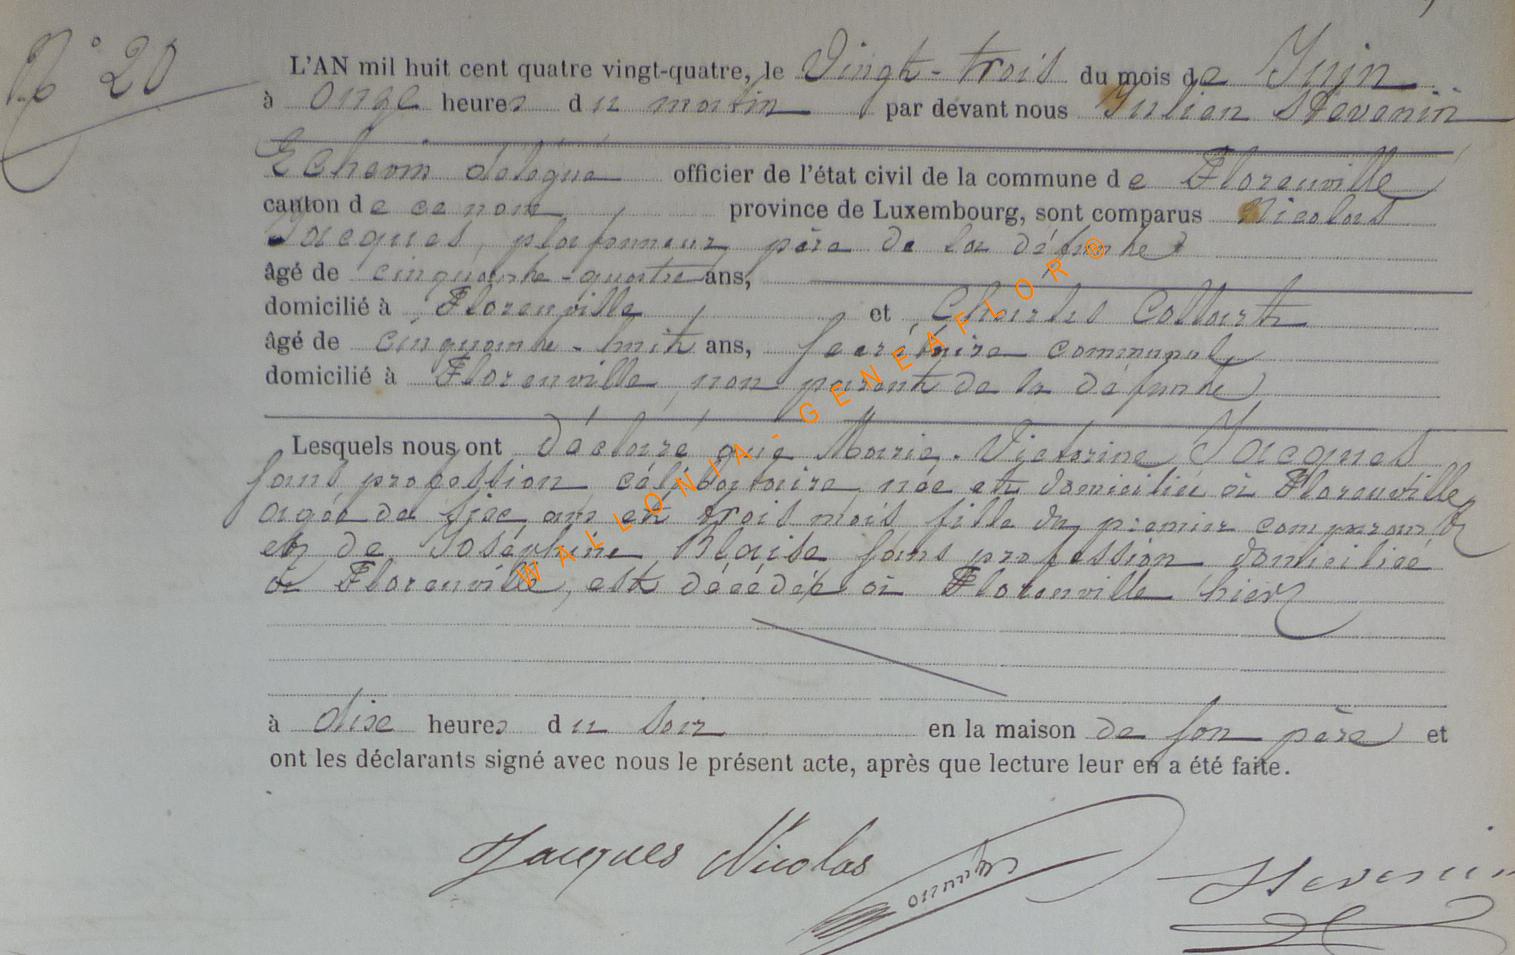 N° 20
L'AN mil huit cent quatre vingt-quatre, le Vingt-trois du mois de Juin
à onze heures du matin par devant nous Julien Stevenin
Echevin délégué officier de l'état civil de la commune de Florenville
canton de ce nom province de Luxembourg, sont comparus Nicolas
Jacques, plafonneur, père de la défunte
âgé de cinquante-quatre ans,
domicilié à Florenville et Charles Collart
âgé de cinquante-huit ans, secrétaire communal,
domicilié à Florenville, non parent de la défunte
Lesquels nous ont déclaré que Marie-Victorine Jacques
sans profession célibataire, née et domiciliée à Florenville
agée de six ans et trois mois fille du premier comparant
et de Joséphine Blaise sans profession domiciliée
à Florenville, est décédée à Florenville hier
à dixe heures du soir en la maison de son père et
ont les déclarants signé avec nous le présent acte, après que lecture leur en a été faite.
Jacques Nicolas
Stevenin
WALLONIA-GENEAFLOR ©